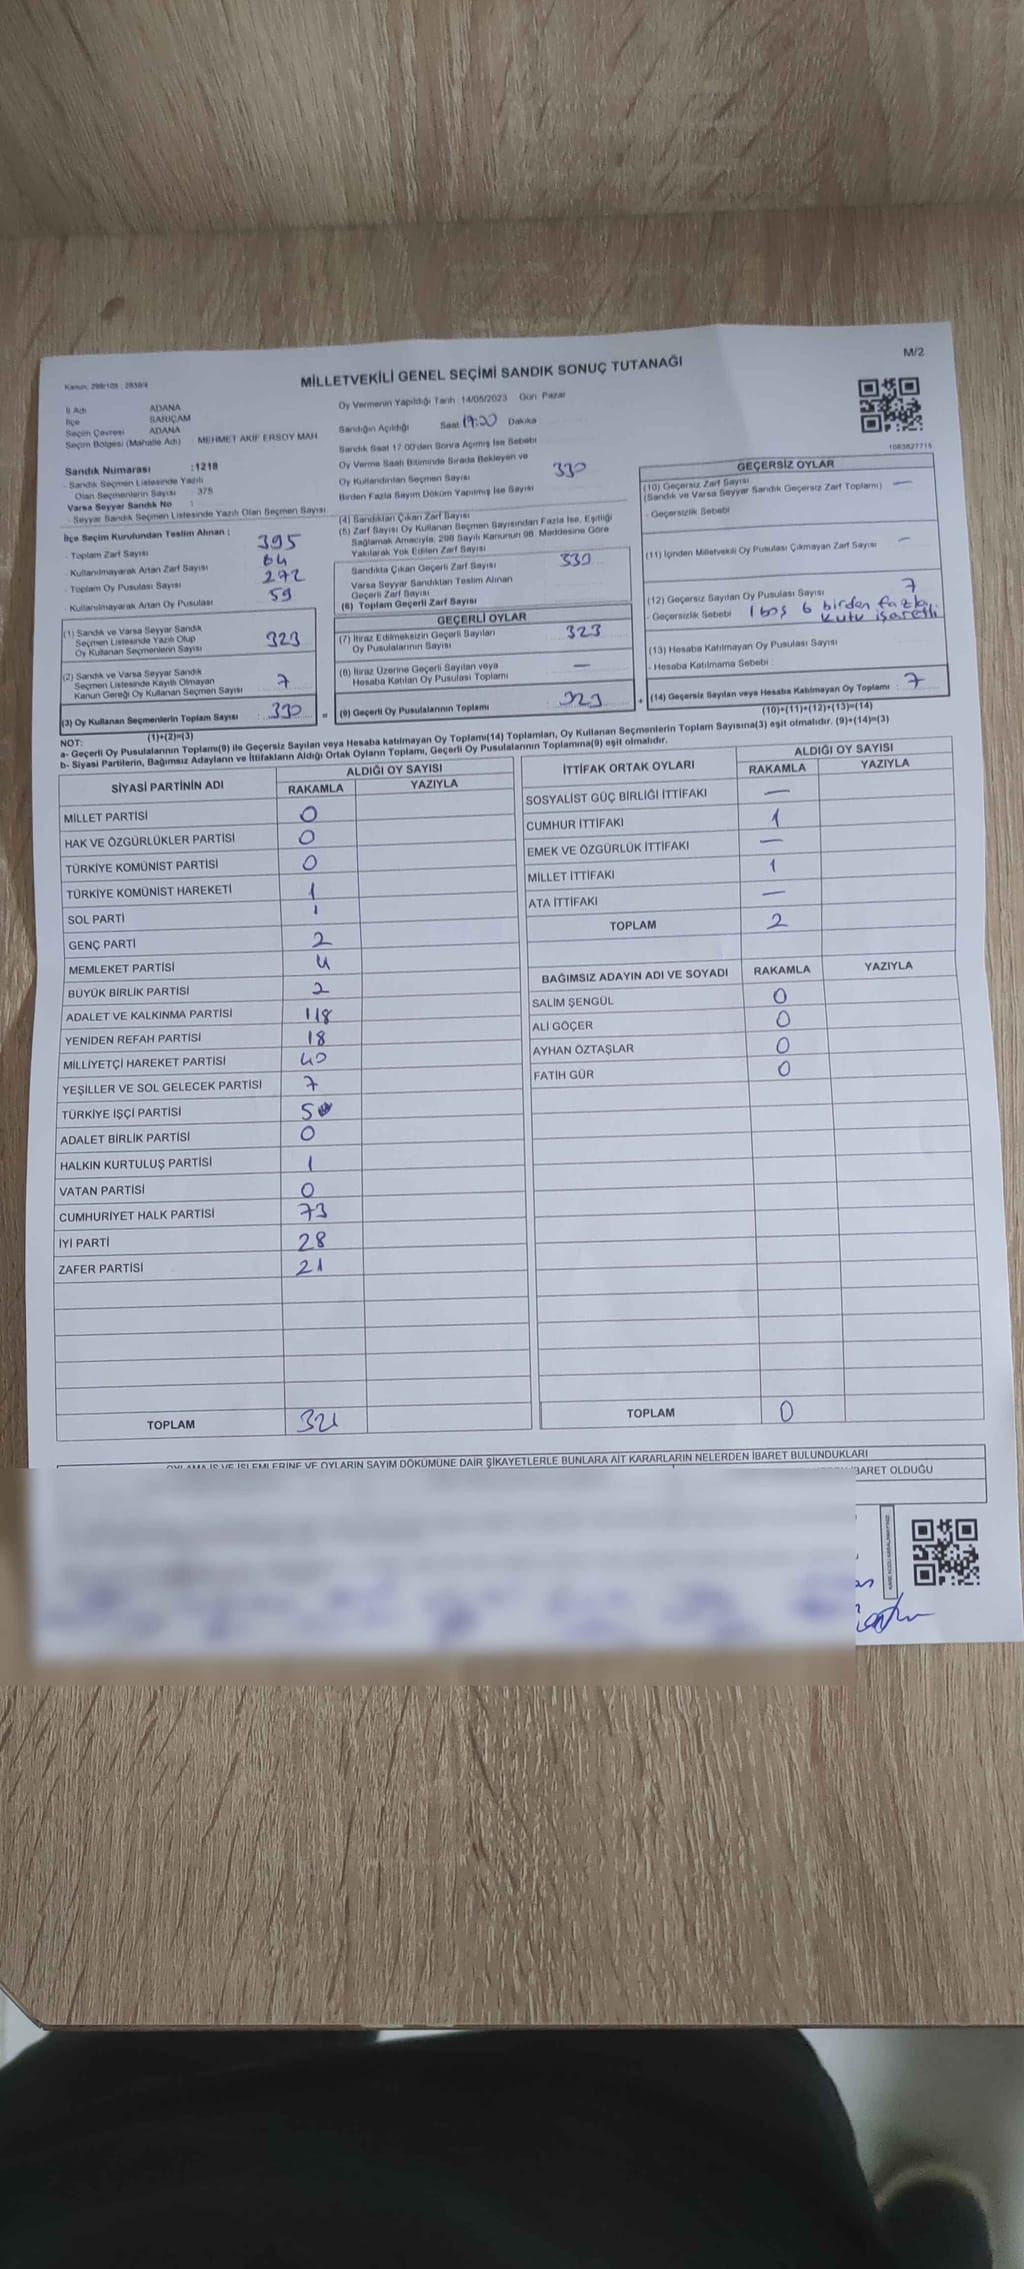 M/2
Kanun: 298/105 , 2839/4
MİLLETVEKİLİ GENEL SEÇİMİ SANDIK SONUÇ TUTANAĞI
İl Adı ADANA
İlçe SARIÇAM
Seçim Çevresi ADANA
Seçim Bölgesi (Mahalle Adı) MEHMET AKİF ERSOY MAH
Sandık Numarası :1218
- Sandık Seçmen Listesinde Yazılı
Olan Seçmenlerin Sayısı : 375
Varsa Seyyar Sandık No :
- Seyyar Sandık Seçmen Listesinde Yazılı Olan Seçmen Sayısı
İlçe Seçim Kurulundan Teslim Alınan :
- Toplam Zarf Sayısı 395
- Kullanılmayarak Artan Zarf Sayısı 64
- Toplam Oy Pusulası Sayısı
- Kullanılmayarak Artan Oy Pusulası 59
(1) Sandık ve Varsa Seyyar Sandık
Seçmen Listesinde Yazılı Olup
Oy Kullanan Seçmenlerin Sayısı 323
(2) Sandık ve Varsa Seyyar Sandık
Seçmen Listesinde Kayıtlı Olmayan
Kanun Gereği Oy Kullanan Seçmen Sayısı 7
(3) Oy Kullanan Seçmenlerin Toplam Sayısı : 330 =
(1)+(2)=(3)
Oy Vermenin Yapıldığı Tarih : 14/05/2023 Gün Pazar
Sandığın Açıldığı Saat Dakika
Sandık Saat 17:00'den Sonra Açmış İse Sebebi
Oy Verme Saati Bitiminde Sırada Bekleyen ve
Oy Kullandırılan Seçmen Sayısı
Birden Fazla Sayım Döküm Yapılmış İse Sayısı
(4) Sandıktan Çıkan Zarf Sayısı 330
(5) Zarf Sayısı Oy Kullanan Seçmen Sayısından Fazla İse, Eşitliği
Sağlamak Amacıyla, 298 Sayılı Kanunun 98. Maddesine Göre
Yakılarak Yok Edilen Zarf Sayısı
Sandıkta Çıkan Geçerli Zarf Sayısı 330
Varsa Seyyar Sandıktan Teslim Alınan
Geçerli Zarf Sayısı
(6) Toplam Geçerli Zarf Sayısı
GEÇERLİ OYLAR
(7) İtiraz Edilmeksizin Geçerli Sayılan
Oy Pusulalarının Sayısı 323
(8) İtiraz Üzerine Geçerli Sayılan veya
Hesaba Katılan Oy Pusulası Toplamı —
(9) Geçerli Oy Pusulalarının Toplamı 323 +
1083827715
GEÇERSİZ OYLAR
(10) Geçersiz Zarf Sayısı
(Sandık ve Varsa Seyyar Sandık Geçersiz Zarf Toplamı) —
- Geçersizlik Sebebi
(11) İçinden Milletvekili Oy Pusulası Çıkmayan Zarf Sayısı —
(12) Geçersiz Sayılan Oy Pusulası Sayısı 7
- Geçersizlik Sebebi 1 boş 6 birden fazla
kutu işaretli
(13) Hesaba Katılmayan Oy Pusulası Sayısı
- Hesaba Katılmama Sebebi :
(14) Geçersiz Sayılan veya Hesaba Katılmayan Oy Toplamı : 7
(10)+(11)+(12)+(13)=(14)
NOT:
a- Geçerli Oy Pusulalarının Toplamı(9) ile Geçersiz Sayılan veya Hesaba katılmayan Oy Toplamı(14) Toplamları, Oy Kullanan Seçmenlerin Toplam Sayısına(3) eşit olmalıdır. (9)+(14)=(3)
b- Siyasi Partilerin, Bağımsız Adayların ve İttifakların Aldığı Ortak Oyların Toplamı, Geçerli Oy Pusulalarının Toplamına(9) eşit olmalıdır.
SİYASİ PARTİNİN ADI ALDIĞI OY SAYISI
RAKAMLA YAZIYLA
MİLLET PARTİSİ 0
HAK VE ÖZGÜRLÜKLER PARTİSİ 0
TÜRKİYE KOMÜNİST PARTİSİ 0
TÜRKİYE KOMÜNİST HAREKETİ 1
SOL PARTİ 1
GENÇ PARTİ 2
MEMLEKET PARTİSİ 4
BÜYÜK BİRLİK PARTİSİ 2
ADALET VE KALKINMA PARTİSİ 118
YENİDEN REFAH PARTİSİ 18
MİLLİYETÇİ HAREKET PARTİSİ 40
YEŞİLLER VE SOL GELECEK PARTİSİ 7
TÜRKİYE İŞÇİ PARTİSİ 5
ADALET BİRLİK PARTİSİ 0
HALKIN KURTULUŞ PARTİSİ 1
VATAN PARTİSİ 0
CUMHURİYET HALK PARTİSİ 73
İYİ PARTİ 28
ZAFER PARTİSİ 21
TOPLAM 321
İTTİFAK ORTAK OYLARI ALDIĞI OY SAYISI
RAKAMLA YAZIYLA
SOSYALİST GÜÇ BİRLİĞİ İTTİFAKI —
CUMHUR İTTİFAKI 1
EMEK VE ÖZGÜRLÜK İTTİFAKI —
MİLLET İTTİFAKI 1
ATA İTTİFAKI —
TOPLAM 2
BAĞIMSIZ ADAYIN ADI VE SOYADI RAKAMLA YAZIYLA
SALİM ŞENGÜL 0
ALİ GÖÇER 0
AYHAN ÖZTAŞLAR 0
FATİH GÜR 0
TOPLAM 0
OYLAMA İŞ VE İŞLEMLERİNE VE OYLARIN SAYIM DÖKÜMÜNE DAİR ŞİKAYETLERLE BUNLARA AİT KARARLARIN NELERDEN İBARET BULUNDUKLARI
İBARET OLDUĞU